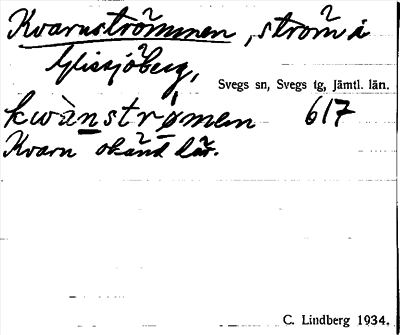 Kvarnströmmen, ström i
Glissjöberg,
Svegs sn, Svegs tg, Jämtl. län.
kwànstrømen 6/7
Kvarn okänd där.
C. Lindberg 1934.